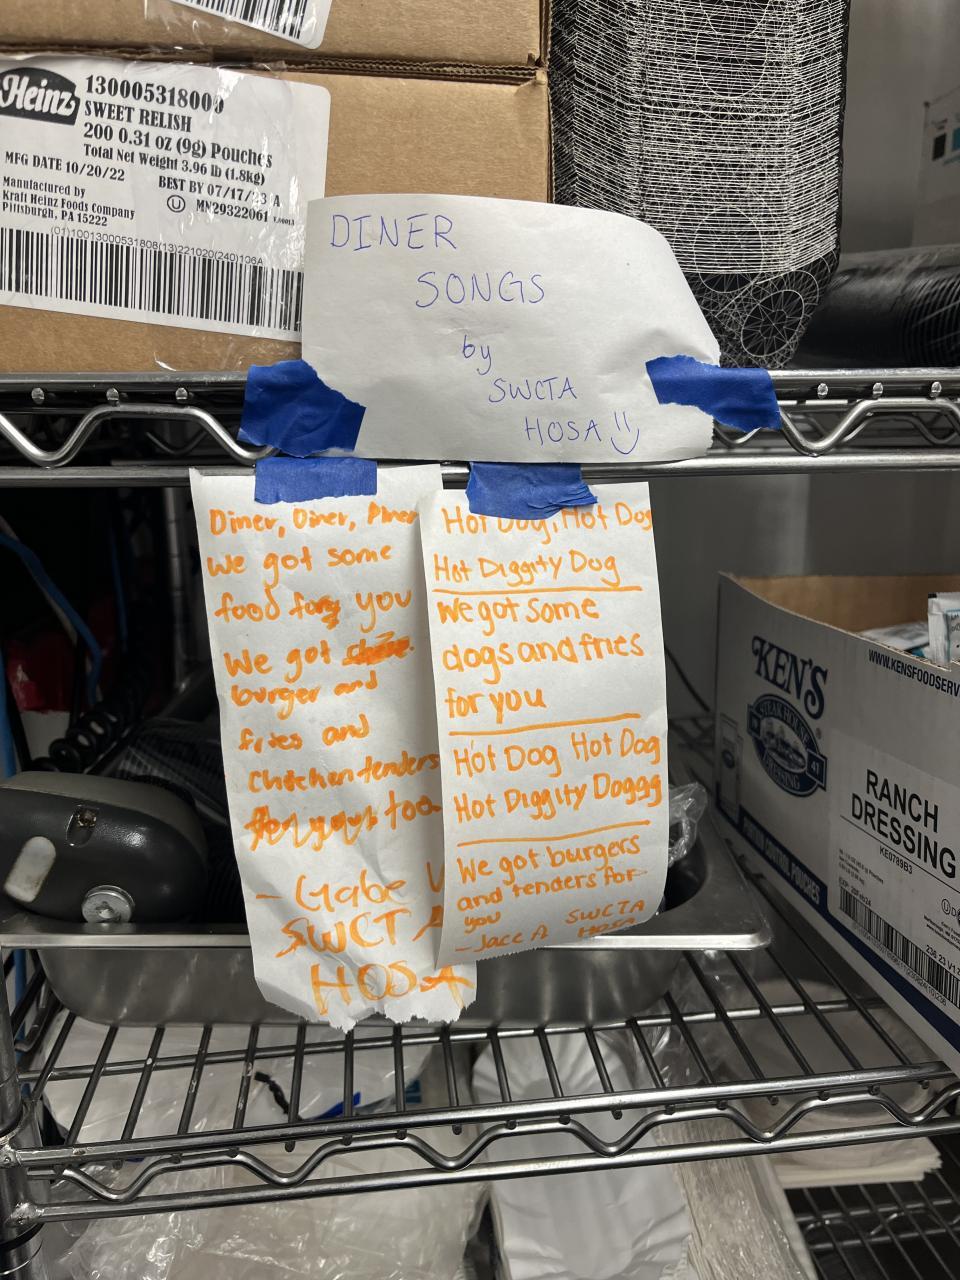 Heinz
130005318000
SWEET RELISH
200 0.31 oz (9g) Pouches
Total Net Weight 3.96 lb (1.8kg)
MFG DATE 10/20/22
BEST BY 07/17/23 A
Manufactured by
Kraft Heinz Foods Company
Pittsburgh, PA 15222
MN29322061
(01)10013000531808(13)221020(240)106A
DINER
SONGS
by
SWCTA
HOSA
Diner, Diner, Diner
We got some
food for you
We got
burger and
fries and
chicken tenders
too
- Gabe V
SWCTA
HOSA
Hot Dog, Hot Dog
Hot Diggity Dog
We got some
dogs and fries
for you
Hot Dog Hot Dog
Hot Diggity Doggg
We got burgers
and tenders for
you
- Jace A SWCTA
HOSA
KEN'S
STEAK HOUSE
DRESSING
41
WWW.KENSFOODSERV
RANCH
DRESSING
KE0789B3